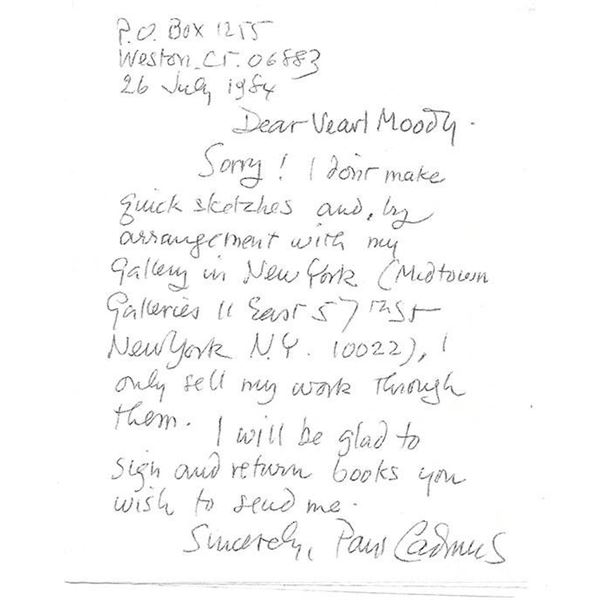 P.O. Box 1255
Weston. CT. 06883
26 July 1984
Dear Vearl Moody.
Sorry! I don't make
quick sketches and, by
arrangement with my
Gallery in New York (Midtown
Galleries 11 East 57 th St
New York N.Y. 10022), I
only sell my work through
them. I will be glad to
sign and return books you
wish to send me.
Sincerely, Paul Cadmus